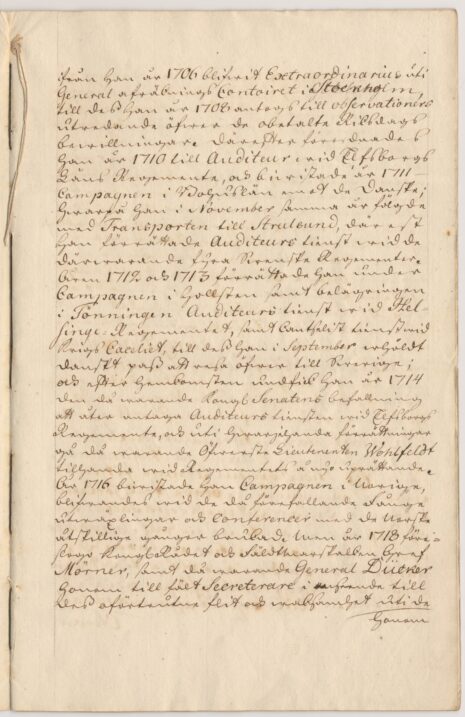 ifrån han år 1706 blifvit Extraordinarius uti
General afräknings Contoiret i Stockholm,
till dess han år 1708 antogs till observationers
utredande öfver de obetalte Riksdags
bevillningar. därefter förordnades
han år 1710 till Auditeur vid Elfsborgs
Läns Regemente, och bivistade år 1711
Campagnen i Bohuslän emot de Danske;
hvarpå han i November samma år följde
med Transporten till Stralsund, där est
han förrättade Auditeurs tienst vid de
därvarande fyra Svenska Regementer.
Åren 1712 och 1713 förrättade han under
Campagnen i Hollsten samt belägringen
i Tönningen Auditeurs tienst vid Hel-
singe-Regementet, samt Cantzelist tienst vid
Krigs Cancellet, till dess han i September erhöldt
danskt pass att resa öfver till Sverige;
och efter hemkomsten undfick han år 1714
den då varande Kongl. Senatens befallning
att åter antaga Auditeurs tiensten vid Elfsborgs
Regemente, och uti hvarjehanda förrättningar
gå då varande Öfverste Lieutenanten Wohlfeldt
tillhanda vid Regementets å nyo uprättande.
År 1716 bivistade han Campagnen i Norige,
blifvandes vid de då förefallande Fånge
utväxlingar och Conferencer med de Norske
åtskillige gånger brukad. Men år 1718 före-
slogo Kongl. Rådet och Fältmarskalken Gref
Mörner, samt då varande General Dücker
honom till fält Secreterare i anseende till
dess oförtrutne flit och vaksamhet uti de
honom